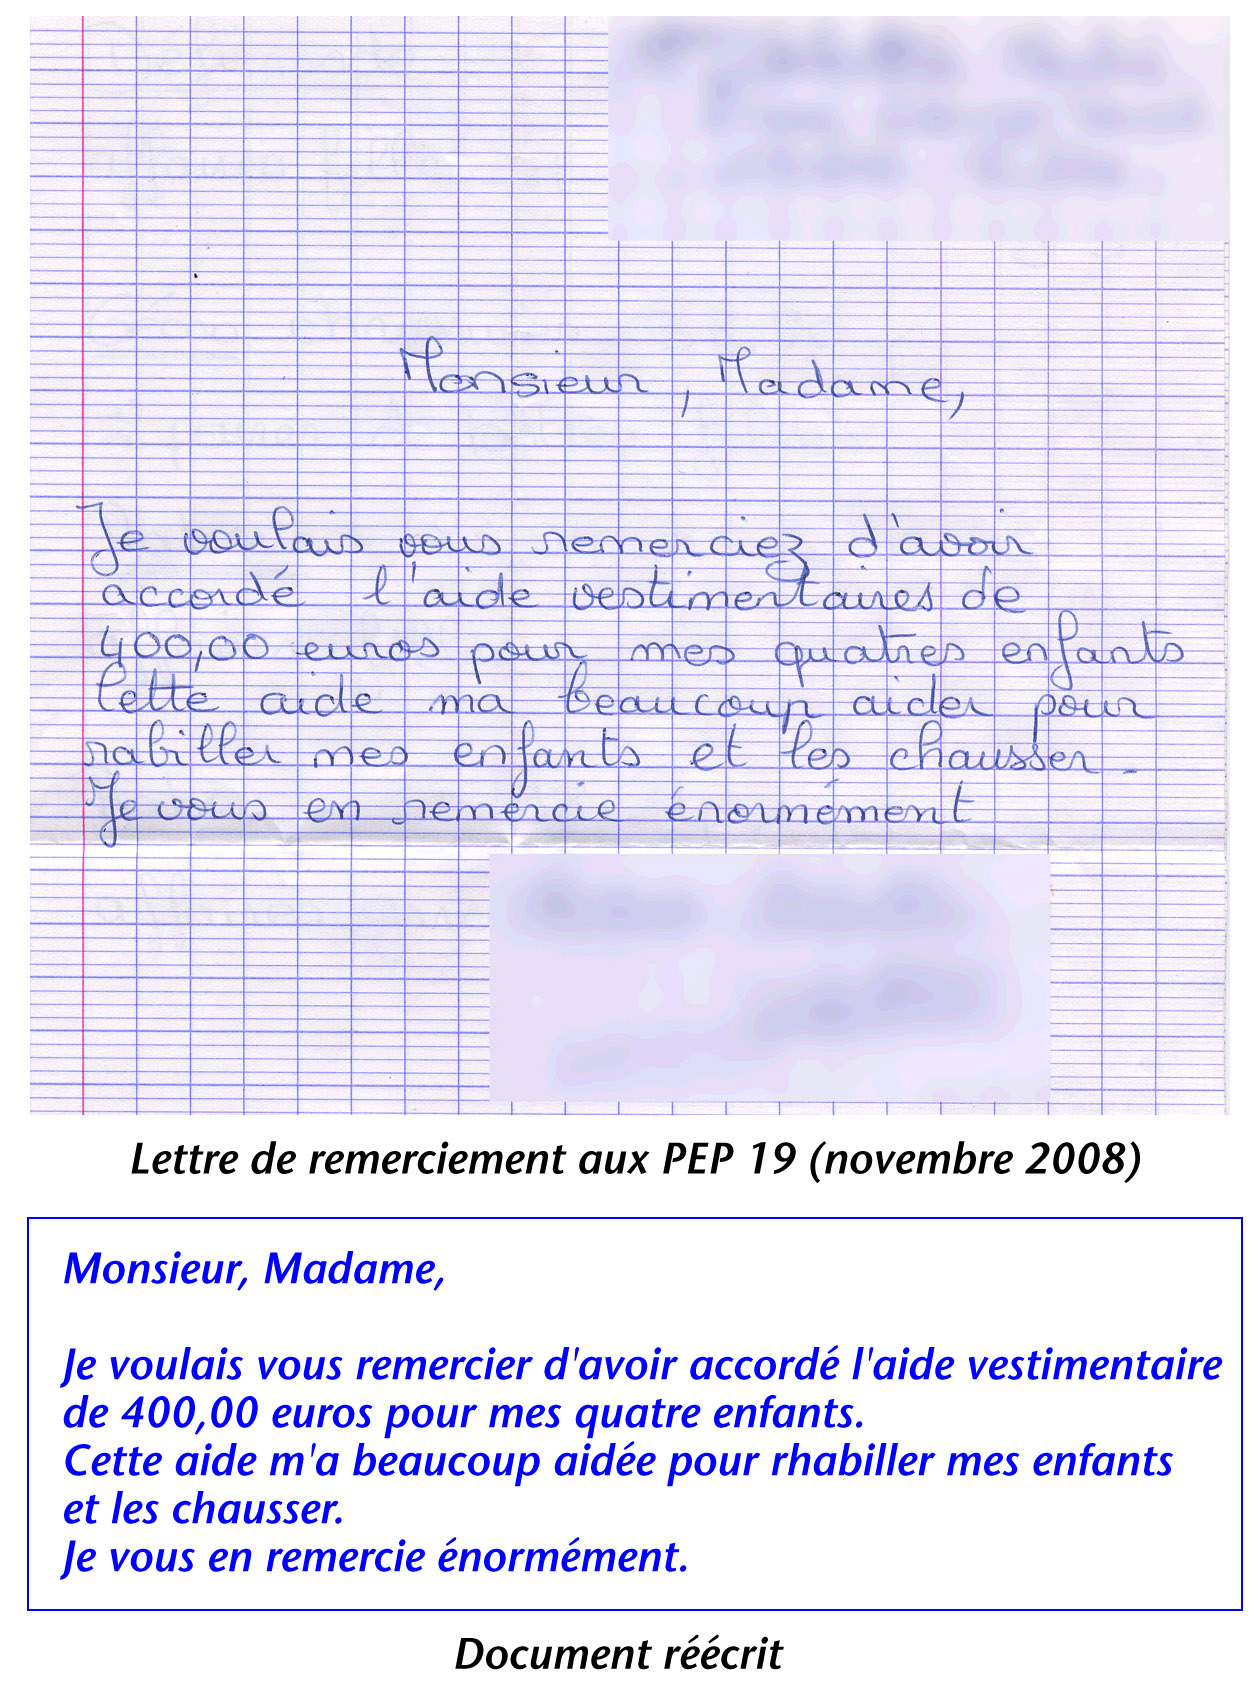 Monsieur, Madame,
Je voulais vous remerciez d'avoir
accordé l'aide vestimentaires de
400,00 euros pour mes quatres enfants
Cette aide ma beaucoup aider pour
rabiller mes enfants et les chausser.
Je vous en remercie énormément
Lettre de remerciement aux PEP 19 (novembre 2008)
Monsieur, Madame,
Je voulais vous remercier d'avoir accordé l'aide vestimentaire
de 400,00 euros pour mes quatre enfants.
Cette aide m'a beaucoup aidée pour rhabiller mes enfants
et les chausser.
Je vous en remercie énormément.
Document réécrit